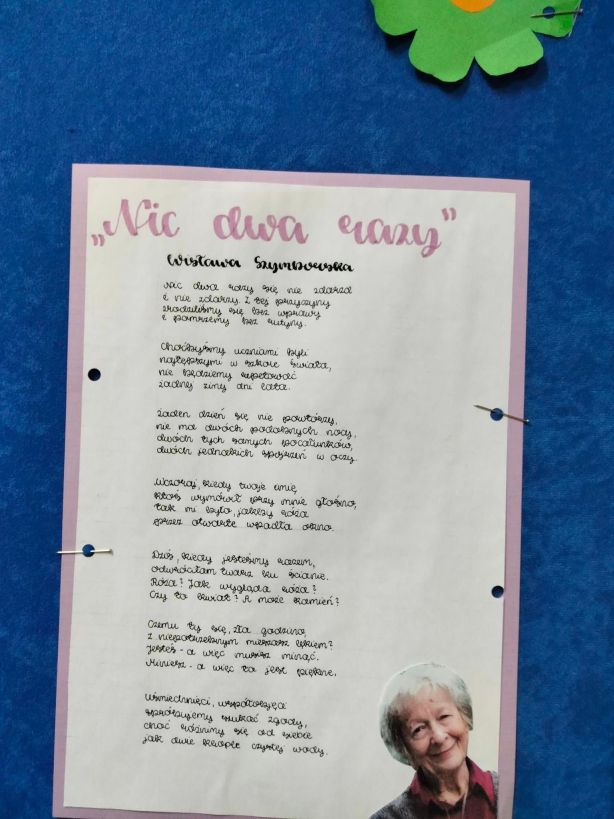 „Nic dwa razy"
Wisława Szymborska
Nic dwa razy się nie zdarza
i nie zdarzy. Z tej przyczyny
zrodziliśmy się bez wprawy
i pomrzemy bez rutyny.
Choćbyśmy uczniami byli
najtępszymi w szkole świata,
nie będziemy repetować
żadnej zimy ani lata.
Żaden dzień się nie powtórzy,
nie ma dwóch podobnych nocy,
dwóch tych samych pocałunków,
dwóch jednakich spojrzeń w oczy.
Wczoraj, kiedy twoje imię
ktoś wymówił przy mnie głośno,
tak mi było, jakby róża
przez otwarte wpadła okno.
Dziś, kiedy jesteśmy razem,
odwróciłam twarz ku ścianie.
Róża? Jak wygląda róża?
Czy to kwiat? A może kamień?
Czemu ty się, zła godzino,
z niepotrzebnym mieszasz lękiem?
Jesteś - a więc musisz minąć.
Miniesz - a więc to jest piękne.
Uśmiechnięci, współobjęci
spróbujemy szukać zgody,
choć różnimy się od siebie
jak dwie krople czystej wody.